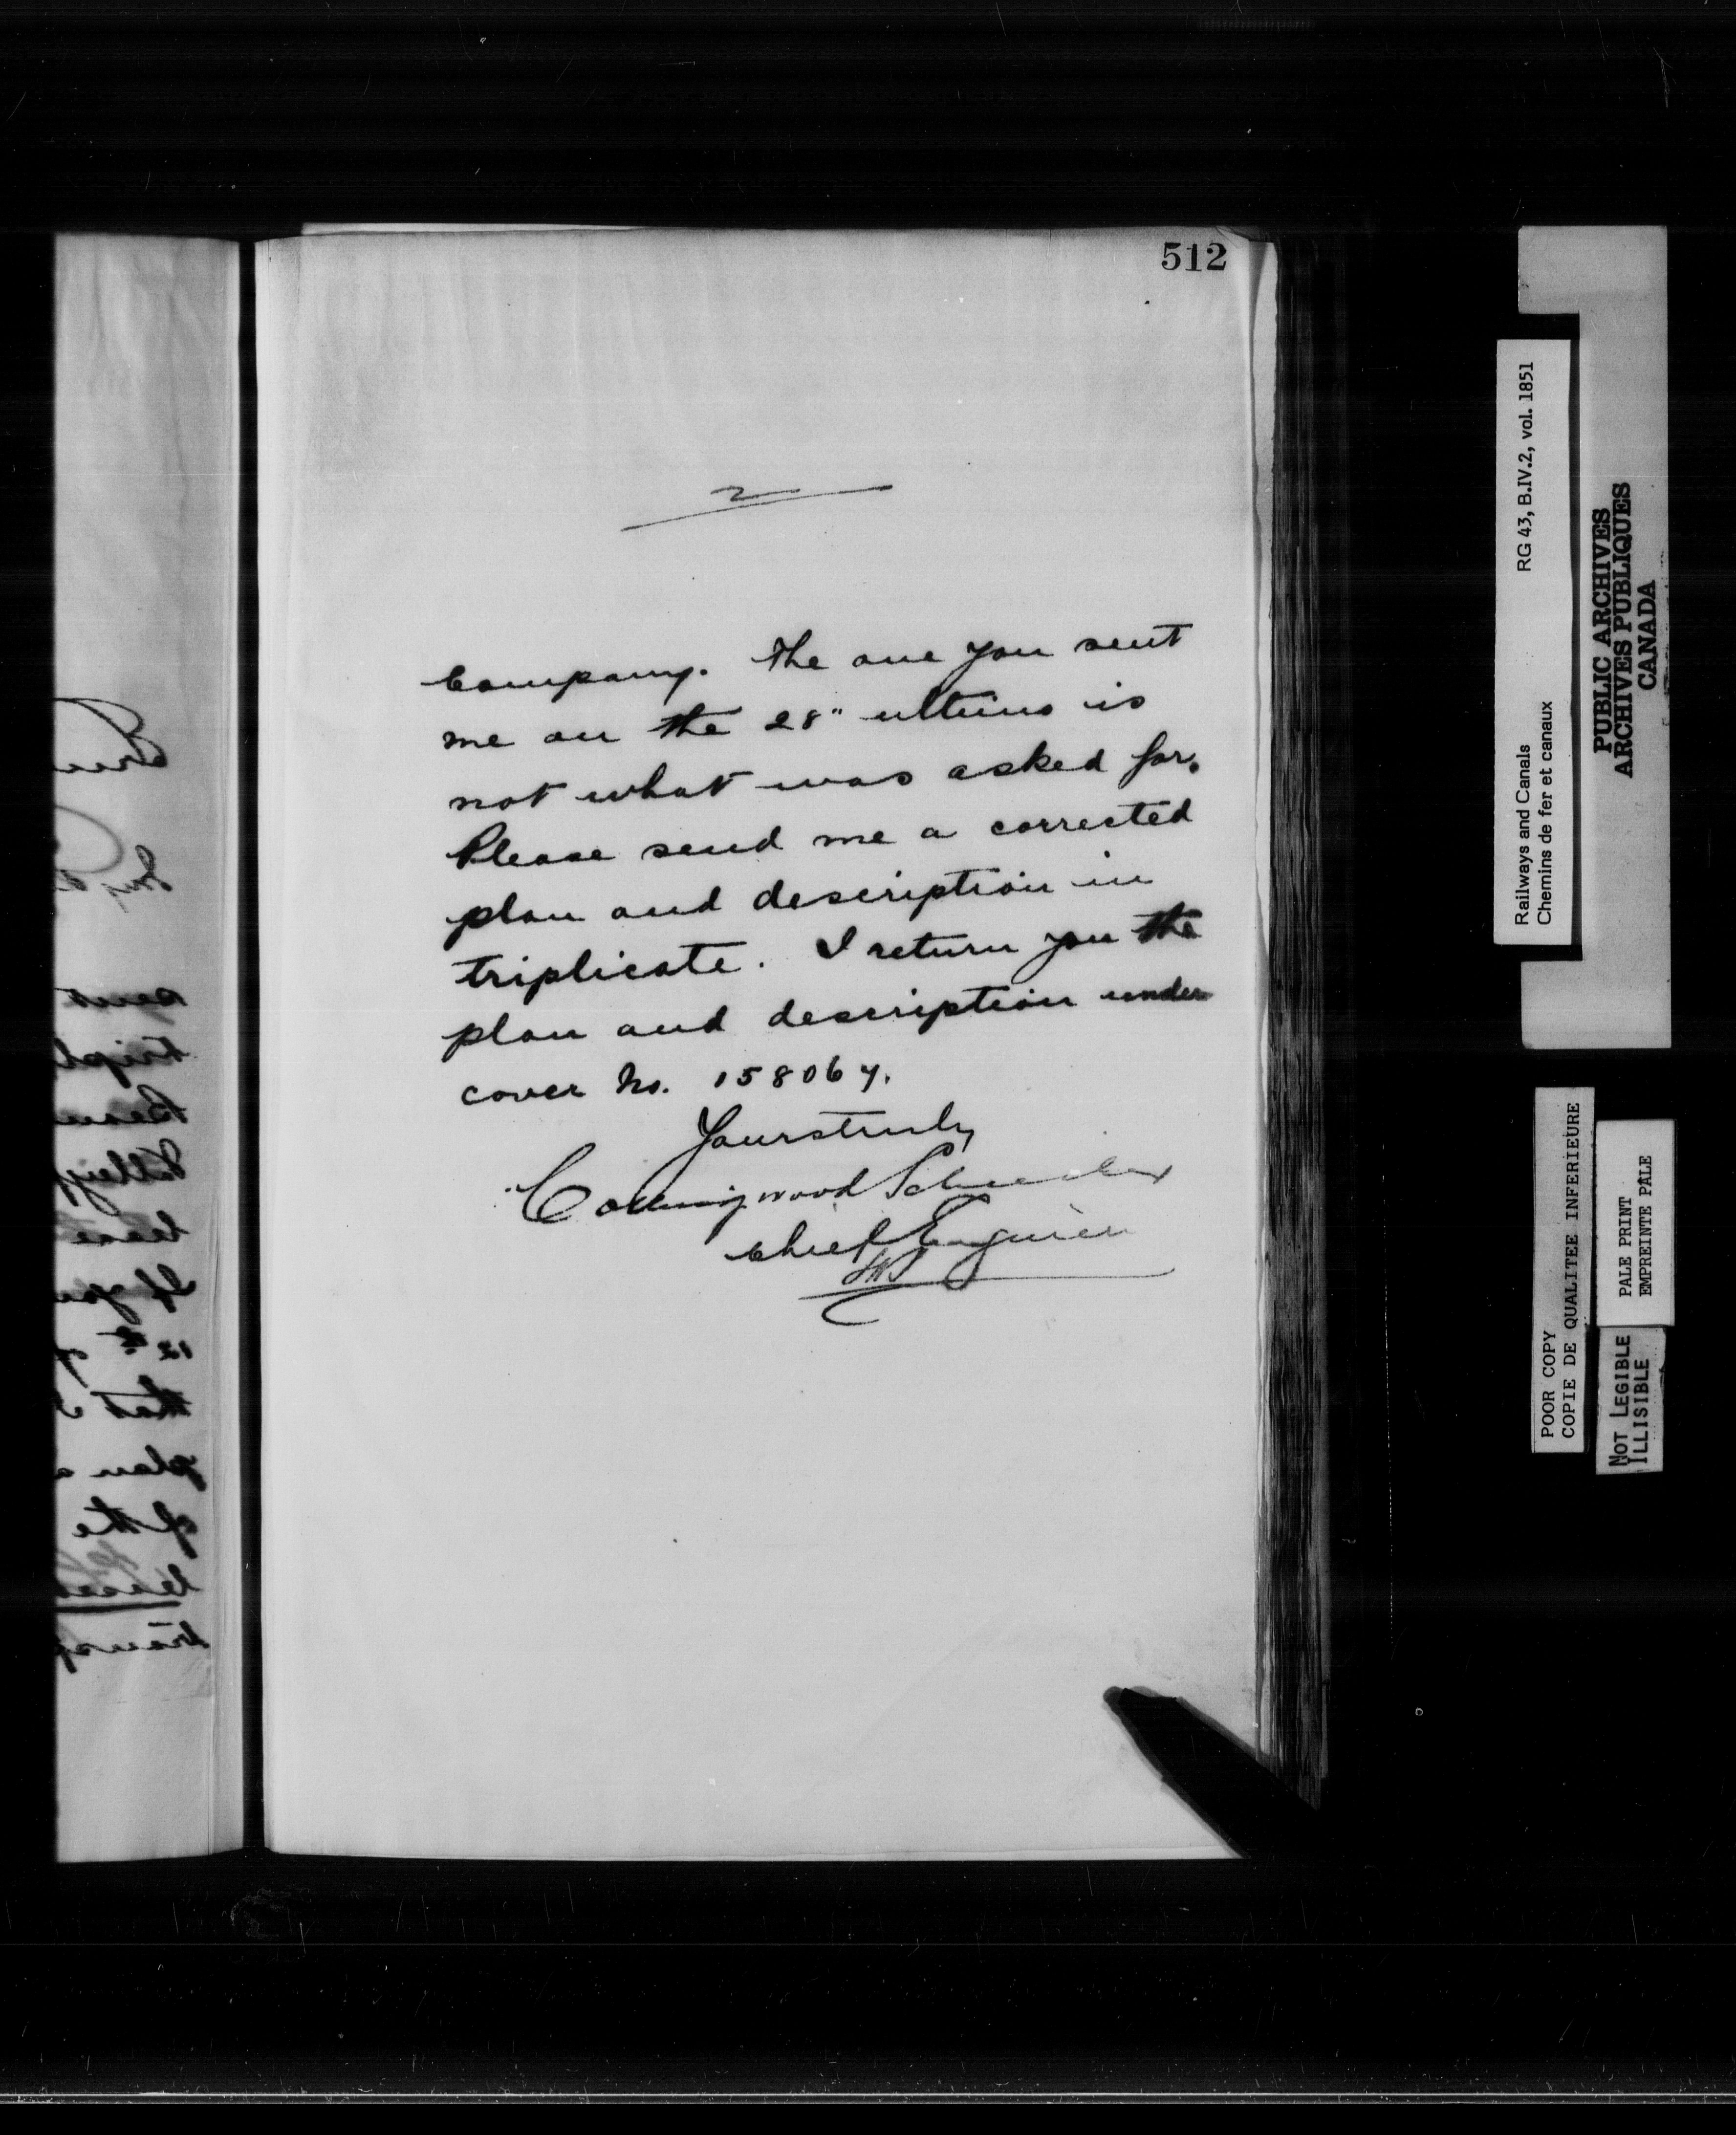 512
2
Company. The one you sent
me on the 28" ultimo is
not what was asked for.
Please send me a corrected
plan and description in
triplicate. I return you the
plan and description under
cover No. 158067.
Yours truly
Collingwood Schreiber
Chief Engineer
Railways and Canals RG 43, B.IV.2, vol. 1851
Chemins de fer et canaux
PUBLIC ARCHIVES
ARCHIVES PUBLIQUES
CANADA
POOR COPY
COPIE DE QUALITEE INFERIEURE
PALE PRINT
EMPREINTE PALE
NOT LEGIBLE
ILLISIBLE